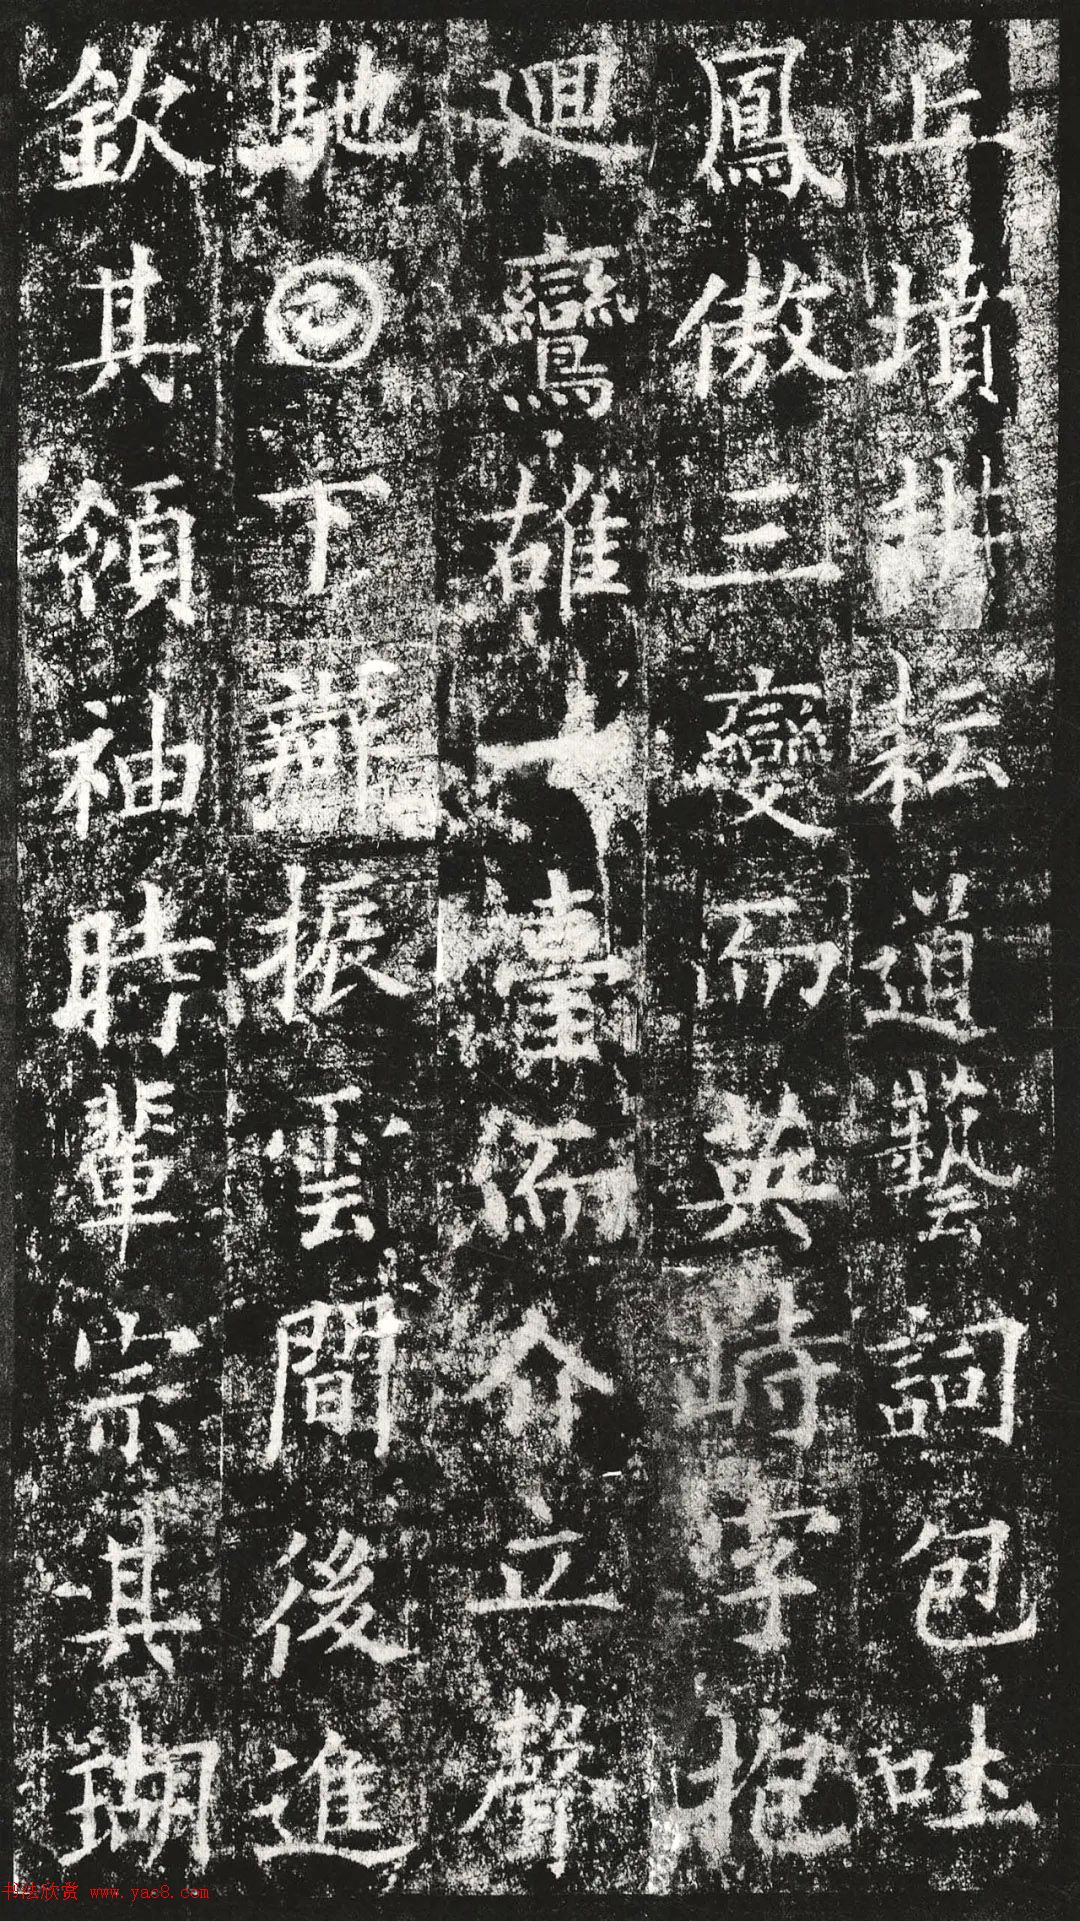 丘墳耕耘道藝詞包吐
鳳傲三變而英峙字抱
廻鸞雄一臺而介立聲
馳𡆠下辯振雲間後進
欽其領袖時輩宗其瑚
书法欣赏 www.yac8.com